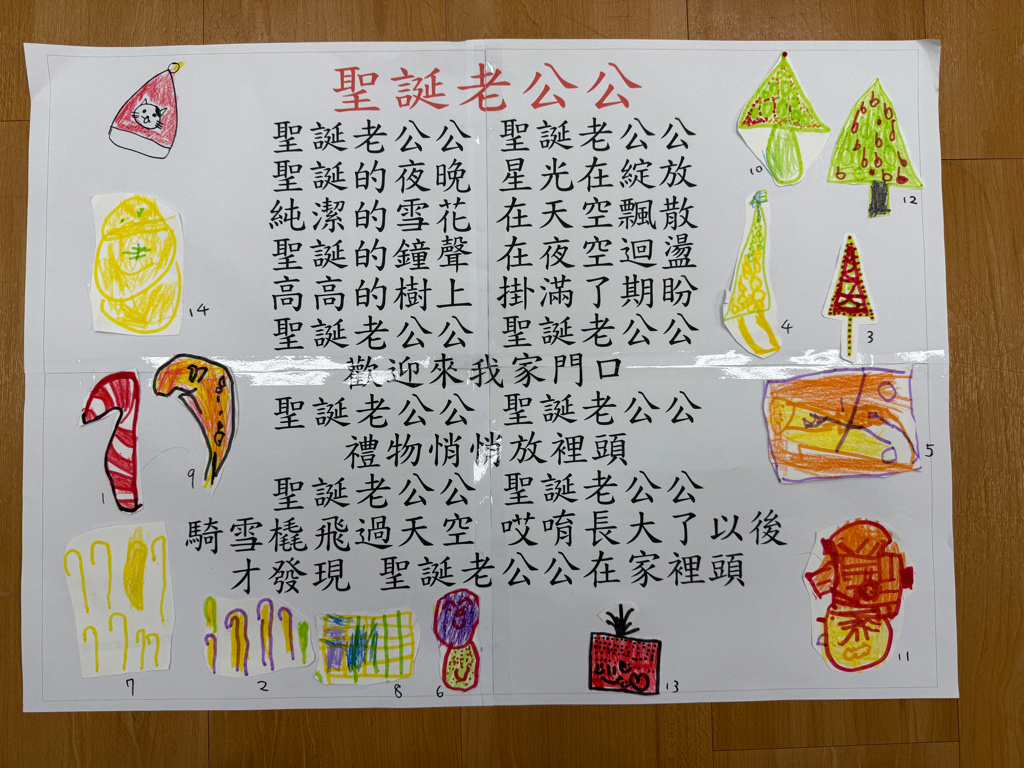 聖誕老公公
聖誕老公公 聖誕老公公
聖誕的夜晚 星光在綻放
純潔的雪花 在天空飄散
聖誕的鐘聲 在夜空迴盪
高高的樹上 掛滿了期盼
聖誕老公公 聖誕老公公
歡迎來我家門口
聖誕老公公 聖誕老公公
禮物悄悄放裡頭
聖誕老公公 聖誕老公公
騎雪橇飛過天空 哎唷長大了以後
才發現 聖誕老公公在家裡頭
10
12
14
4
3
1
9
5
7
2
8
6
13
11